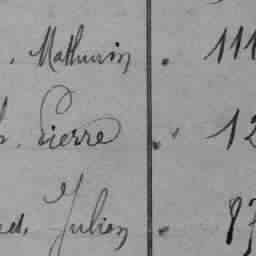 . Mathurin . 111
. Pierre . 12
. Julien . 87